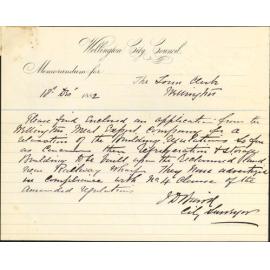 Wellington City Council.
Memorandum for
The Town Clerk
Wellington
18th Decr 1882
Please find enclosed an application from the
Wellington Meat Export Company for a
alteration of the Building Regulations so far
as concerns their Refrigeration & storage
Building to be built upon the reclaimed land
near Railway Wharf. They have advertised
in compliance with No 4 clause of the
amended regulations
City Surveyor